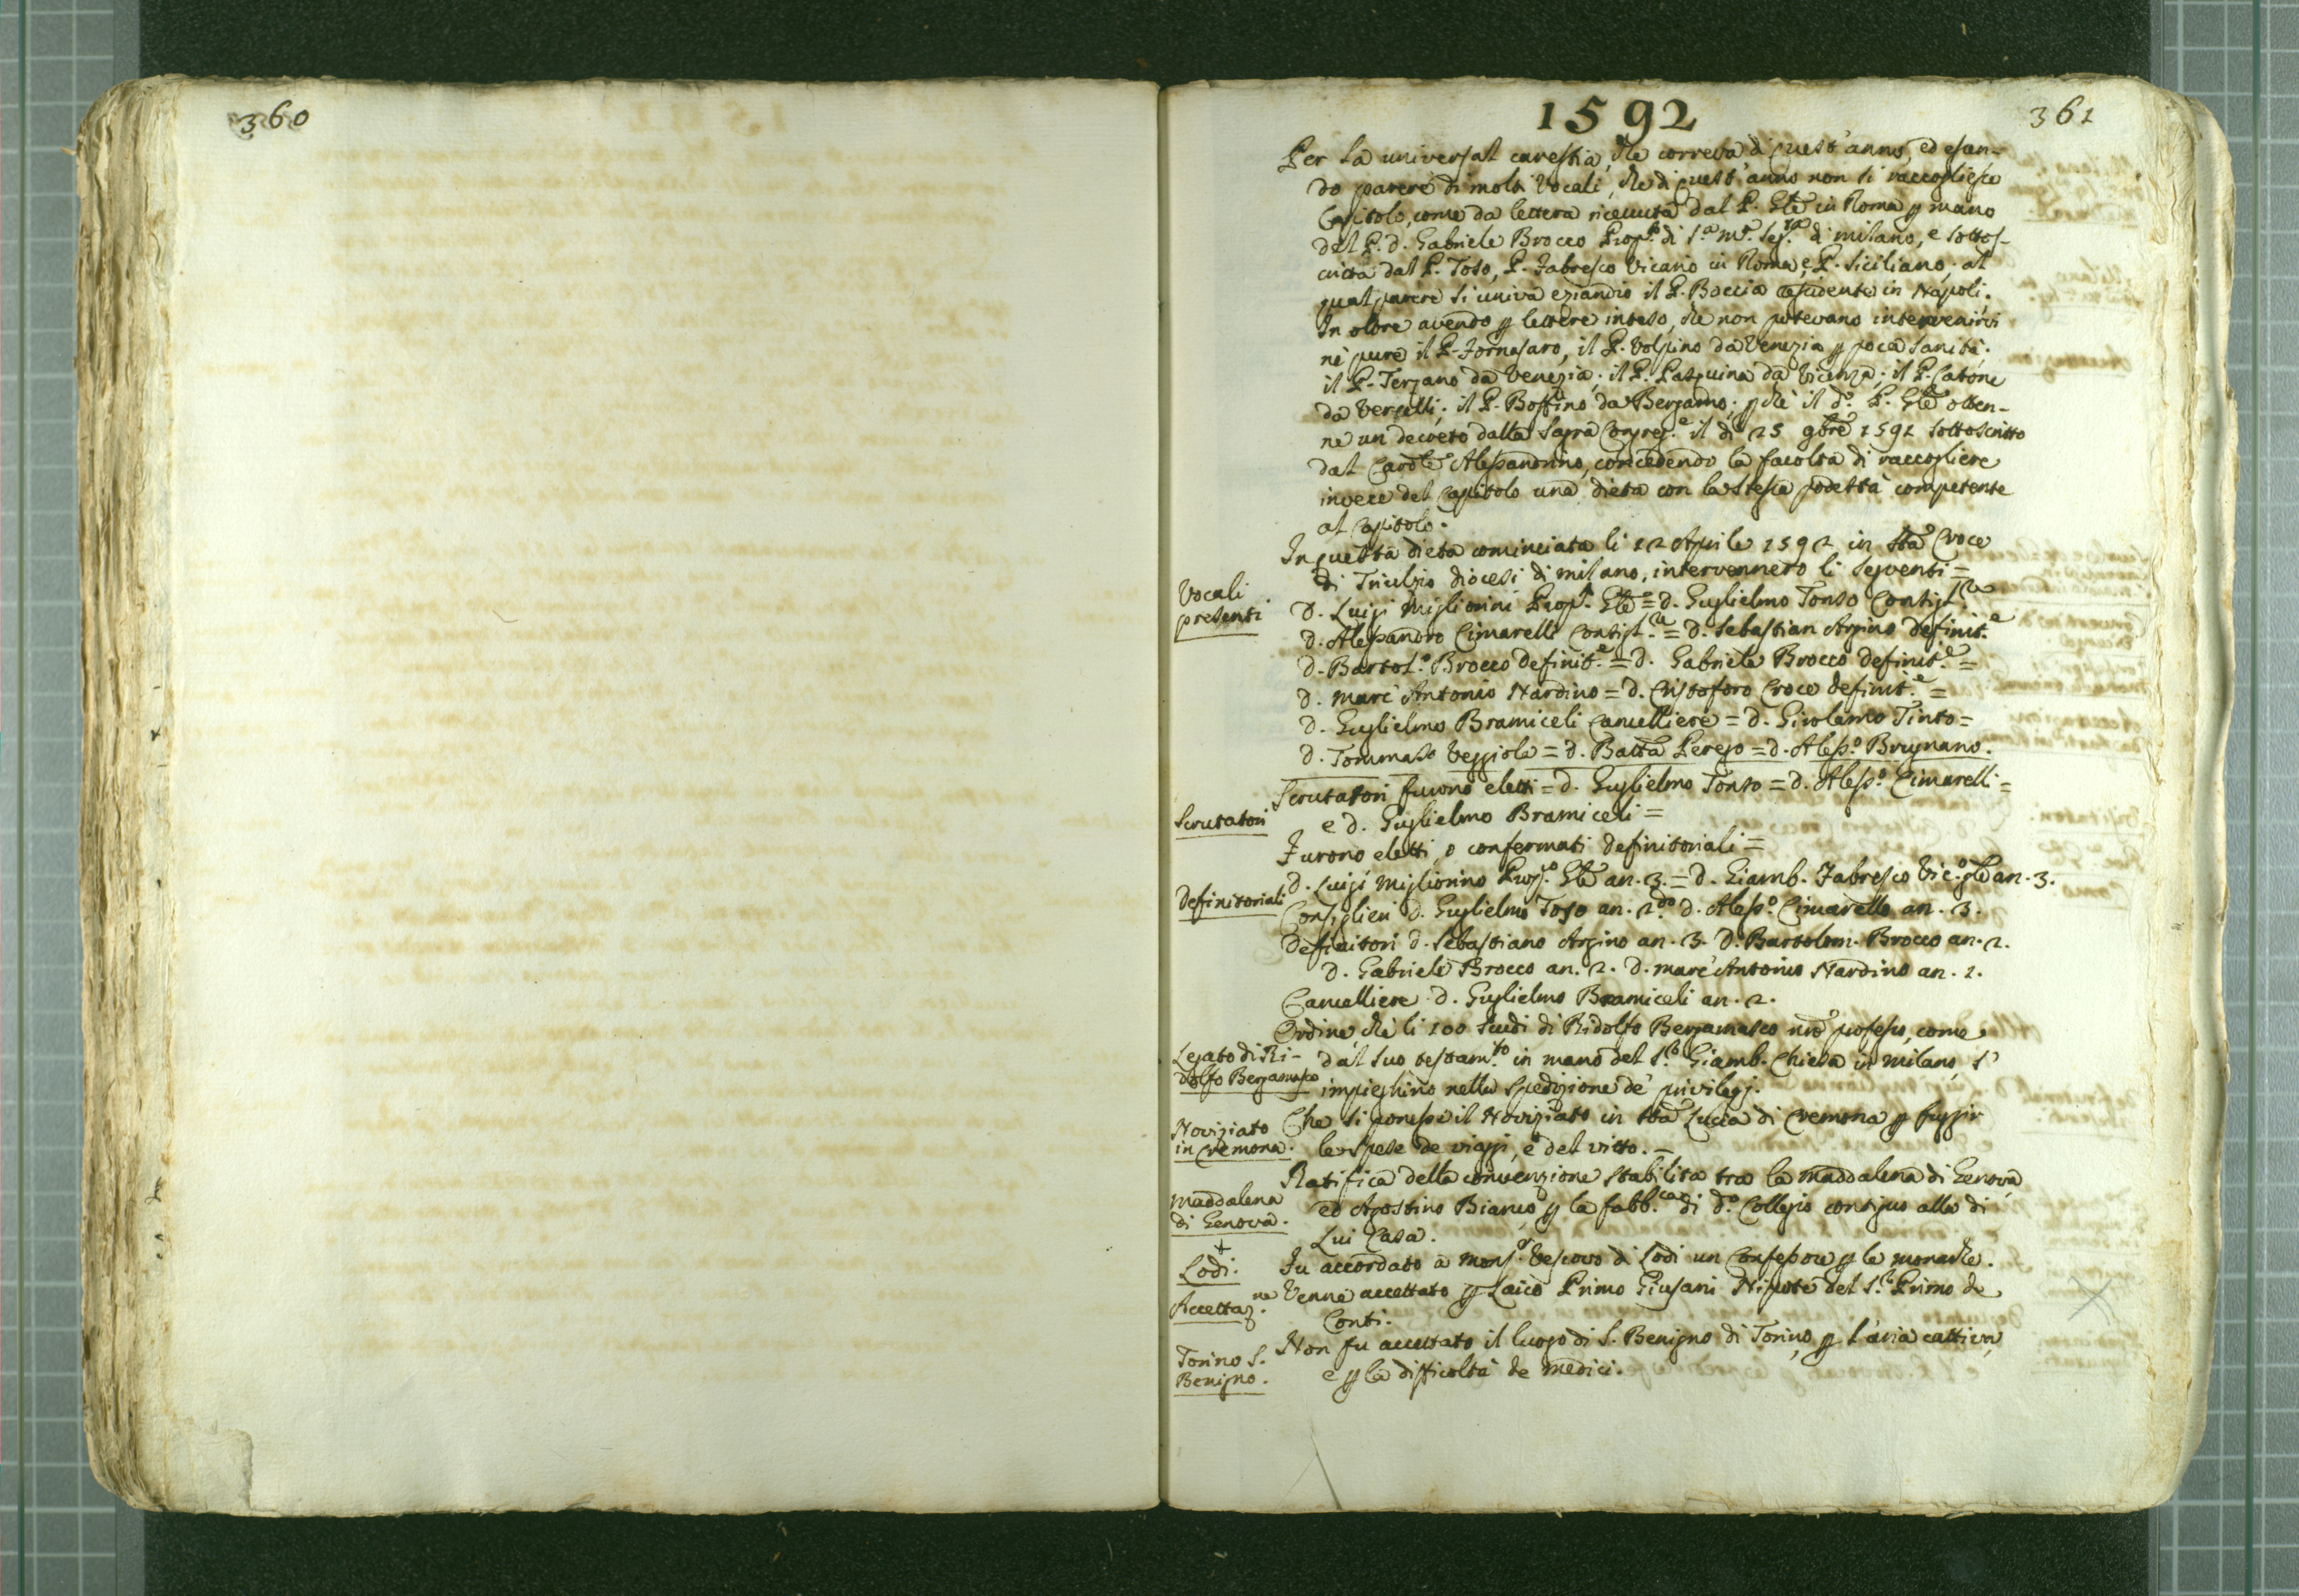 360
1592
361
Per la universal carestia, che correva di quest'anno, ed essen-
do parere di molti Vocali, che di quest'anno non si raccogliesse
Capitolo, come da lettera ricevuta dal P. Gle in Roma p mano
del P. d. Gabriele Brocco Prop.to di S.a M.a Seg.ta di milano, e sottos-
critta dal P. Toso, P. Fabresco Vicario in Roma, e P. Siciliano; al
qual parere si univa eziandio il P. Boccia residente in Napoli.
In oltre avendo p lettere inteso, che non potevano intervenirvi
nè pure il P. Fornasaro, il P. Volpino da Venezia p poca sanità;
il P. Terzano da Venezia; il P. Pasquina da Vicenza; il P. Catone
da Vercelli; il P. Boffino da Bergamo; p chè il d.o P. Gle otten-
ne un decreto dalla Sagra Congreg.e il dì 25 9bre 1591 sottoscritto
dal Cardle Alessandrino, concedendo la facoltà di raccogliere
invece del Capitolo una dieta con la stessa podestà competente
al Capitolo.
In questa dieta cominciata li 12 Aprile 1592 in Sta Croce
di Triulzio diocesi di milano, intervennero li seguenti =
Vocali
presenti
D. Luigi Migliorini Prop.to Gle = d. Guglielmo Tonso Consigl.re
d. Alessandro Cimarelli Consigl.re = d. Sebastian Arpino definit.e
d. Bartol.o Brocco definit.e = d. Gabriele Brocco definit.e =
d. Marc'Antonio Nardino = d. Cristoforo Croce definit.e =
d. Guglielmo Bramiceli Cancelliere = d. Girolamo Tinto =
d. Tommaso Veggiola = d. Batta Perego = d. Aless.o Brugnano.
Scrutatori
Scrutatori furono eletti = d. Guglielmo Tonso = d. Aless.o Cimarelli =
e d. Guglielmo Bramiceli =
Furono eletti, o confermati definitoriali =
Definitoriali
D. Luigi Migliorino Prop.o Gle an. 3. = d. Giamb. Fabresco Vic.o gle an. 3.
Consiglieri d. Guglielmo Toso an. 2.do d. Aless.o Cimarello an. 3.
Definitori d. Sebastiano Arpino an. 3. D. Bartolom. Brocco an. 2.
D. Gabriele Brocco an. 2. D. marc'Antonio Nardino an. 1.
Cancelliere d. Guglielmo Bramiceli an. 2.
Legato di Ri-
dolfo Bergamasco
Ordine, chè li 100 scudi di Ridolfo Bergamasco nro professo, come
dal suo testam.to in mano del S.r Giamb. Chiesa in milano, s'
impieghino nella spedizione de' privilegj.
Noviziato
in Cremona.
Che si ponesse il Noviziato in Sta Lucia di Cremona p fuggir
le spese de viaggi, e del vitto. =
Maddalena
di Genova.
Ratifica della convenzione stabilita tra la Maddalena di Genova,
ed Agostino Bianco, p la fabb.ca di d.o Collegio contiguo alla di
Lui Casa.
+
Lodi.
Fu accordato à Mons.r Vescovo di Lodi un Confessore p le monache.
Accettaz.ne
Venne accettato p Laico Primo Giusani Nipote del S.r Primo de
Conti.
Torino S.
Benigno.
Non fu accettato il luogo di S. Benigno di Torino, p l'aria cattiva,
e p la difficoltà de medici.